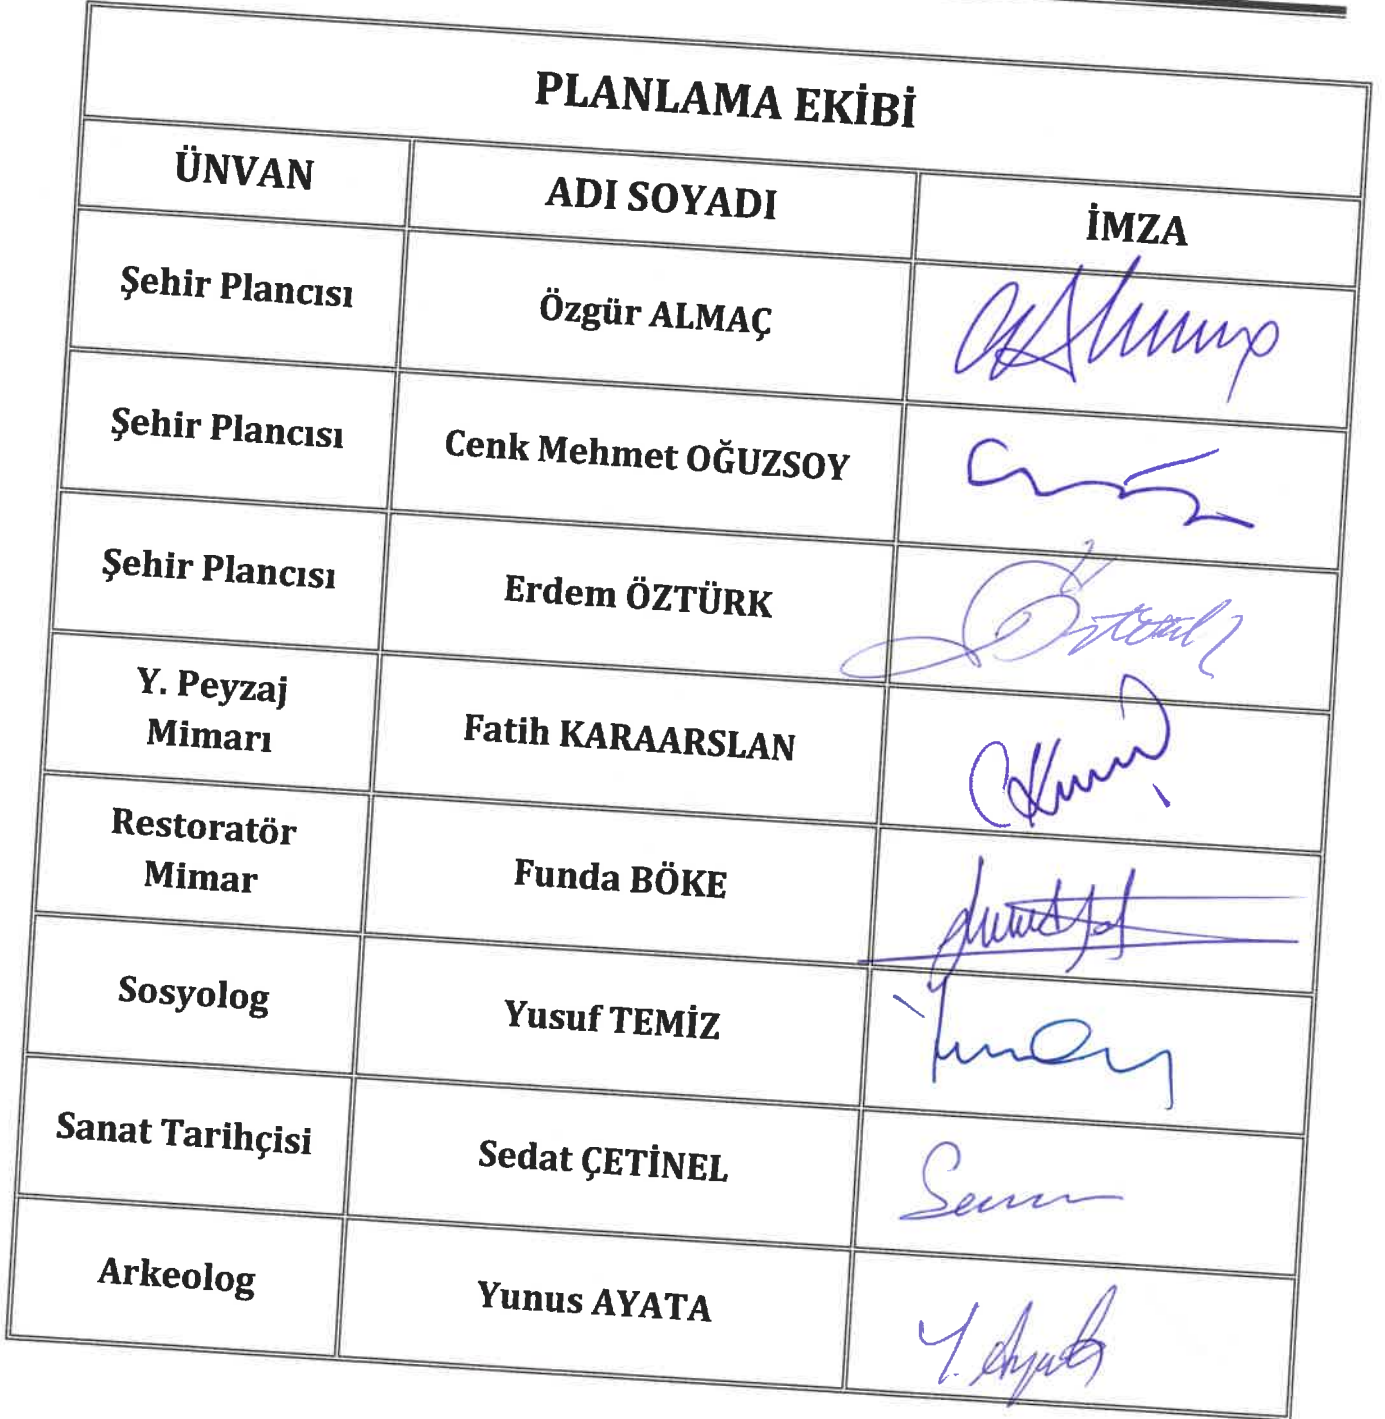 PLANLAMA EKİBİ
ÜNVAN ADI SOYADI İMZA
Şehir Plancısı Özgür ALMAÇ
Şehir Plancısı Cenk Mehmet OĞUZSOY
Şehir Plancısı Erdem ÖZTÜRK
Y. Peyzaj
Mimarı
Fatih KARAARSLAN
Restoratör
Mimar
Funda BÖKE
Sosyolog Yusuf TEMİZ
Sanat Tarihçisi Sedat ÇETİNEL
Arkeolog Yunus AYATA
Y. Ayata